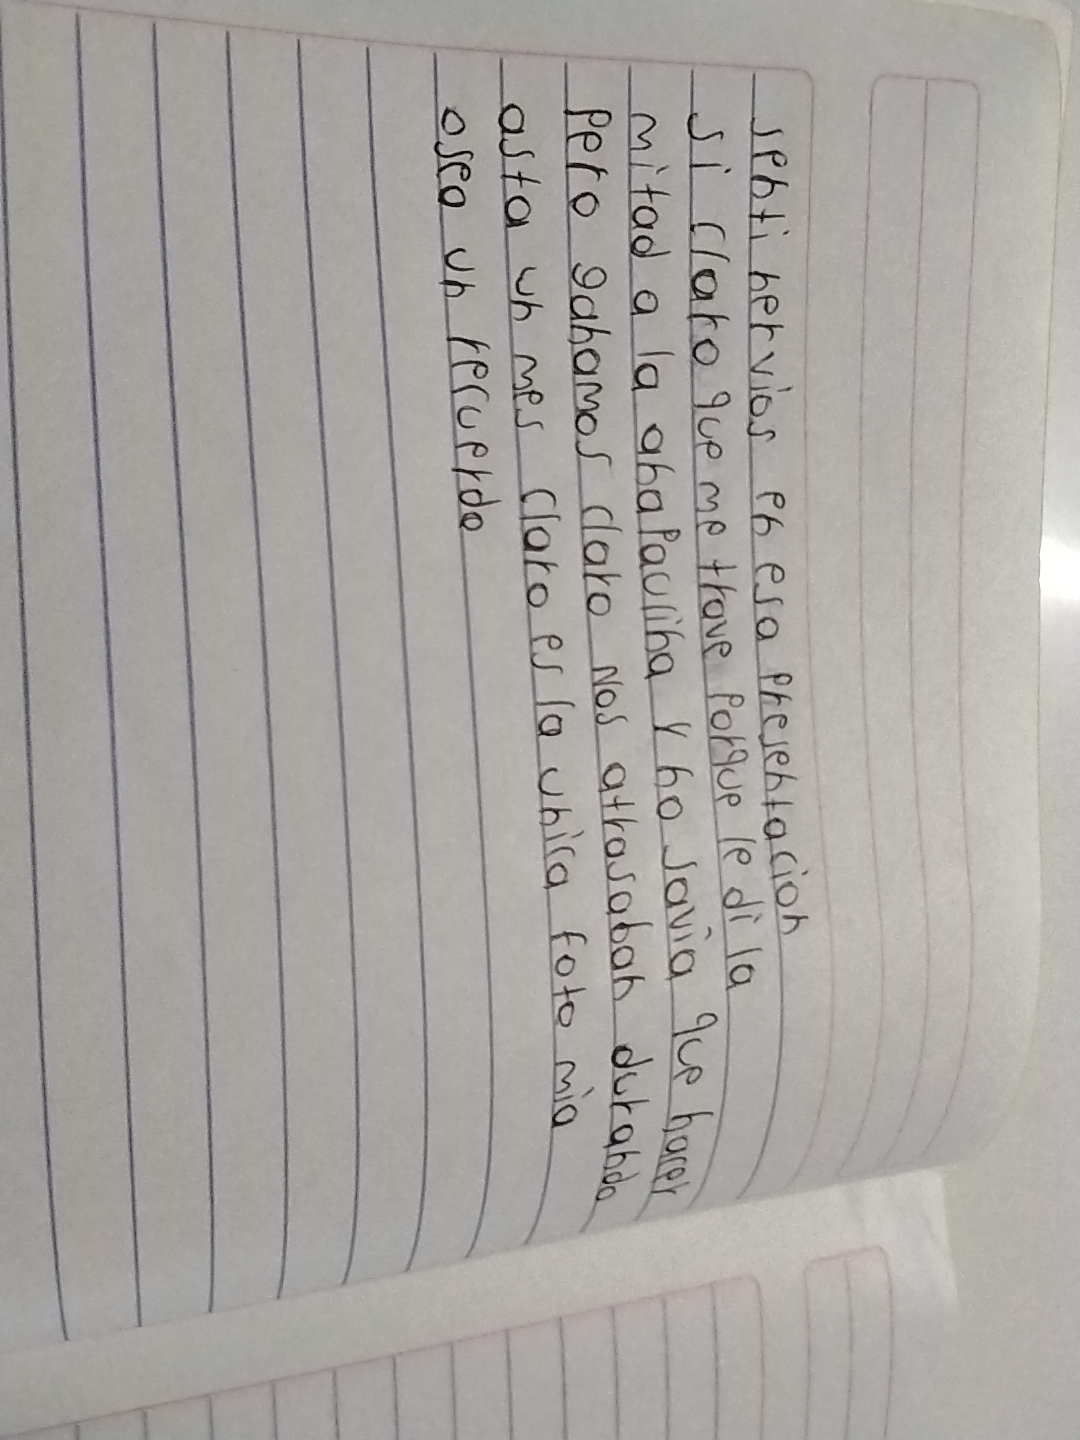 senti nervios en esa presentacion
si claro que me trave porque le di la
mitad a la ana Paulina y no savia que hacer
pero ganamos claro nos atrasaban durando
asta un mes claro es la unica foto mia
osea un recuerdo